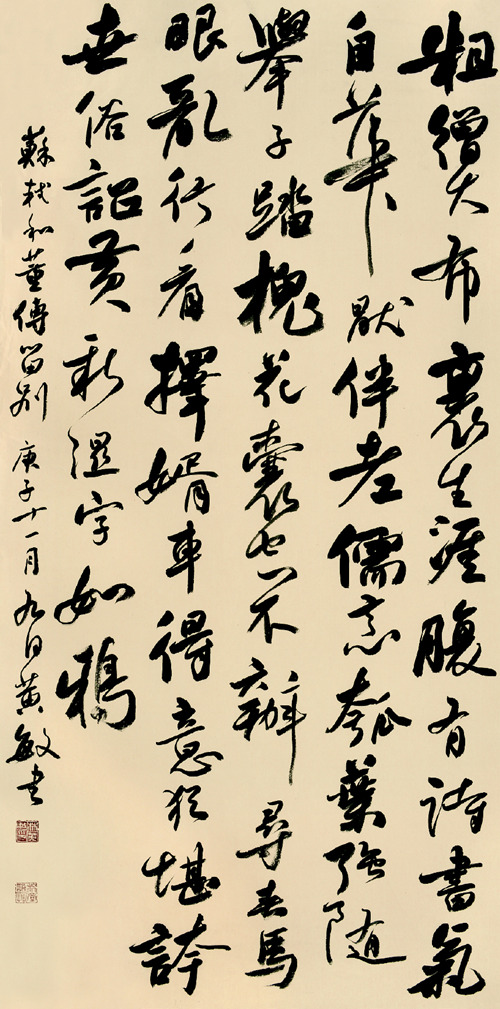 粗繒大布裹生涯腹有詩書氣
自華厭伴老儒烹瓠葉强随
舉子踏槐花囊空不辦尋春馬
眼亂行看擇婿車得意猶堪誇
世俗詔黄新濕字如鴉
蘇軾和董傳留別 庚子十一月九日黄敏書